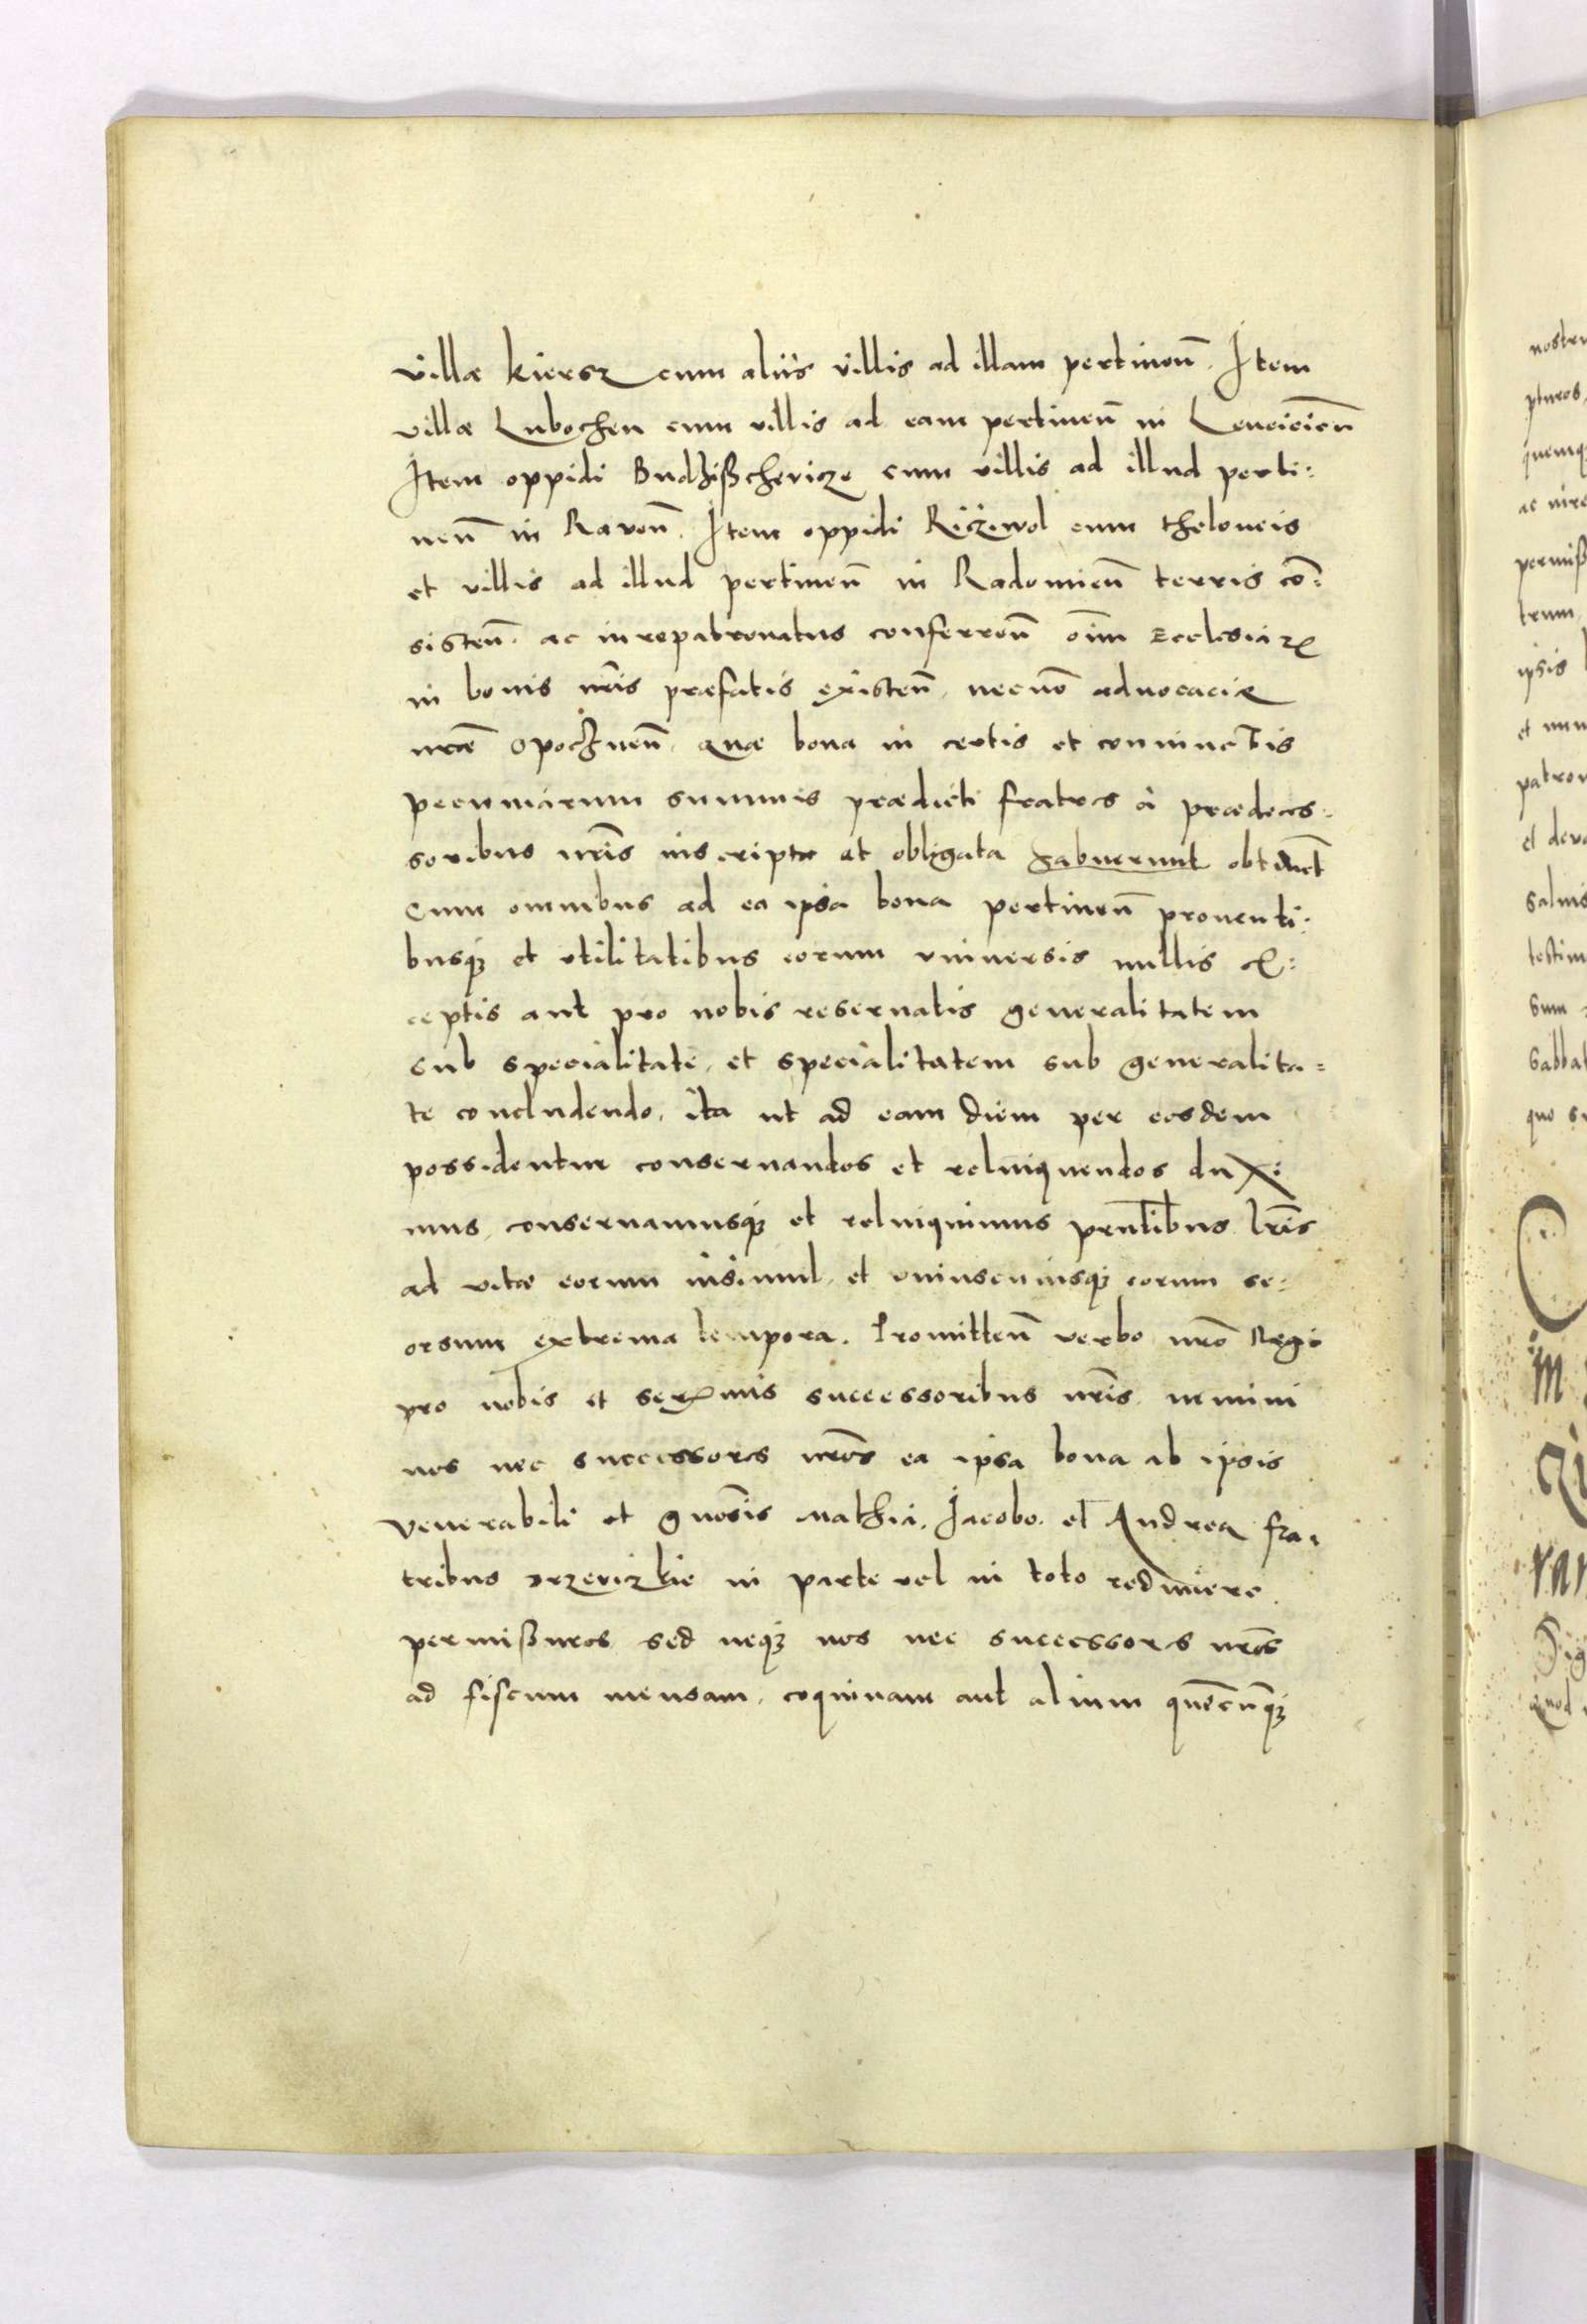 villæ kiersz cum aliis villis ad illam pertinen̄. Item
villæ Lubochen cum villis ad eam pertinen̄ in Lencicien̄
Item oppidi Budzißchevicze cum villis ad illud perti:
nen̄ in Raven̄. Item oppidi Riczivol cum theloneis
et villis ad illud pertinen̄ in Radomien̄ terris cō:
sisten̄. ac iurepatronatus conferren̄ oīm Ecclesiaꝝ
in bonis nr̄is præfatis existen̄, necnō advocaciæ
nr̄æ opocznen̄. quæ bona in certis et coniunctis
pecuniarum summis prædicti fratres à prædeces:
soribus nr̄is inscripta et obligata habuerunt
Cum omnibus ad ea ipsa bona pertinen̄ proventi:
busqꝫ et vtilitatibus eorum vniversis nullis ex:
ceptis aut pro nobis reservatis generalitatem
sub specialitate, et specialitatem sub generalita:
te concludendo, ita ut ad eam diem per eosdem
possidentur conservandos et relinquendos duxi:
mus, conservamusqꝫ et relinquimus pn̄tibus lr̄is
ad vitæ eorum insimul, et vniuscuiusqꝫ eorum se:
orsum extrema tempora. Promitten̄ verbo nr̄o Regio
pro nobis et ser^mis successoribus nr̄is, nemini
nos nec successores nr̄os ea ipsa bona ab ipsis
venerabili et gn̄osis Mathia, Jacobo, et Andrea fra:
tribus Drzeviczkie in parte vel in toto redimere
permißuros, sed neqꝫ nos nec successores nr̄os
ad fiscum mensam, coquinam aut alium quēcūqꝫ